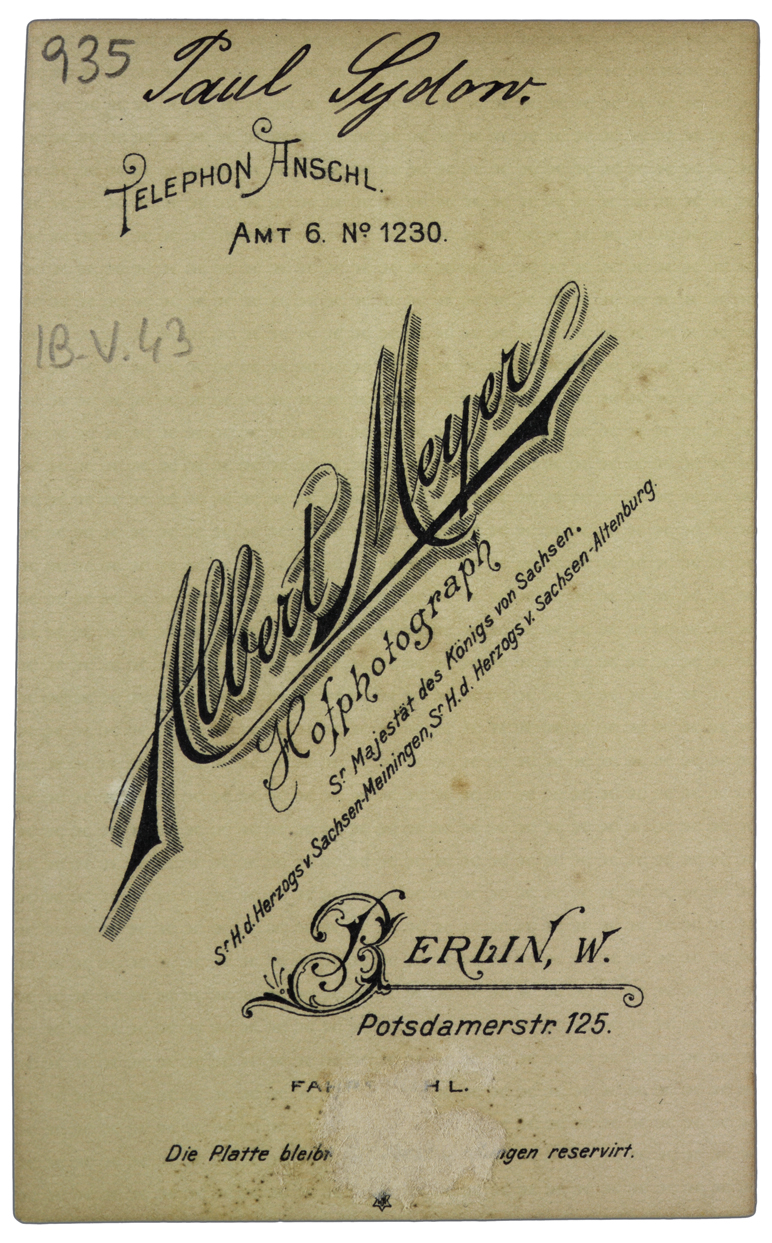 935
Paul Sydow.
TELEPHON ANSCHL.
AMT 6. Nº 1230.
1B-V.43
Albert Meyer
Hofphotograph
Sr Majestät des Königs von Sachsen.
Sr H. d. Herzogs v. Sachsen-Meiningen, Sr H. d. Herzogs v. Sachsen-Altenburg.
BERLIN, W.
Potsdamerstr. 125.
Die Platte reservirt.